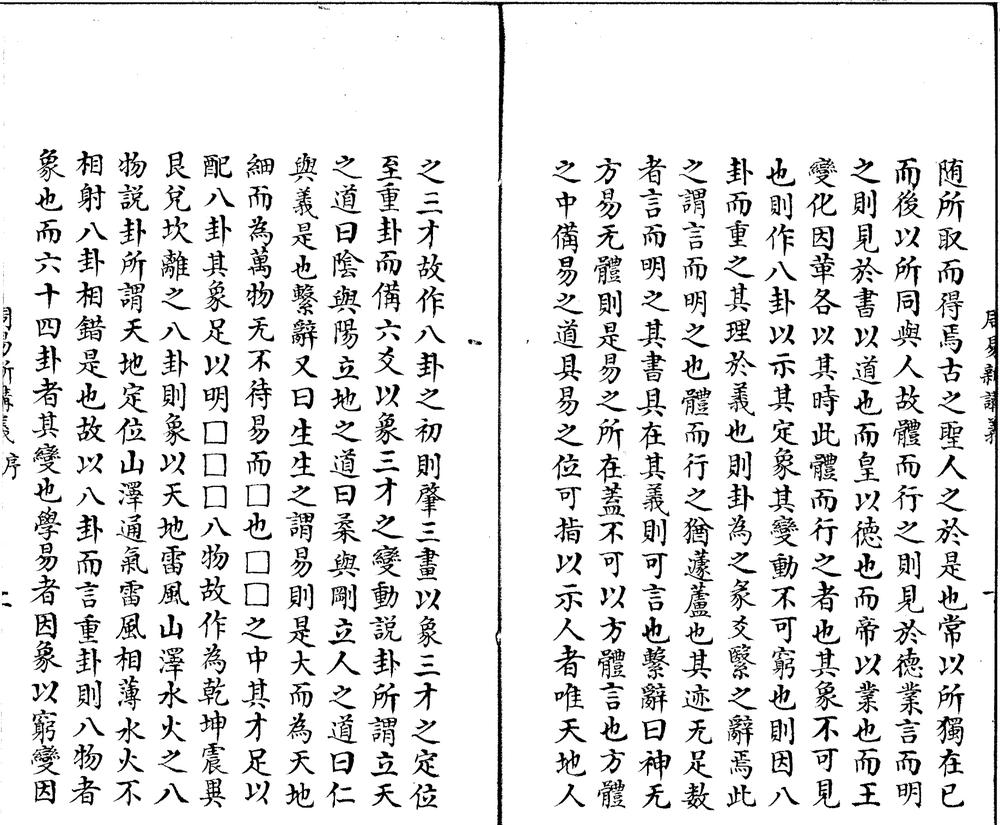 周易新講義
随所取而得焉古之聖人之於是也常以所獨在已
而後以所同與人故體而行之則見於徳業言而明
之則見於書以道也而皇以徳也而帝以業也而王
變化因革各以其時此體而行之者也其象不可見
也則作八卦以示其定象其變動不可窮也則因八
卦而重之其理於義也則卦為之彖爻繫之辭焉此
之謂言而明之也體而行之猶蘧蘆也其迹无足数
者言而明之其書具在其義則可言也繫辭曰神无
方易无體則是易之所在蓋不可以方體言也方體
之中備易之道具易之位可指以示人者唯天地人
之三才故作八卦之初則肇三畫以象三才之定位
至重卦而備六爻以象三才之變動説卦所謂立天
之道曰陰與陽立地之道曰柔與剛立人之道曰仁
與義是也繫辭又曰生生之謂易則是大而為天地
細而為萬物无不待易而□也□□之中其才足以
配八卦其象足以明□□□八物故作為乾坤震巽
艮兌坎離之八卦則象以天地雷風山澤水火之八
物説卦所謂天地定位山澤通氣雷風相薄水火不
相射八卦相錯是也故以八卦而言重卦則八物者
象也而六十四卦者其變也學易者因象以窮變因
周易新講義 序